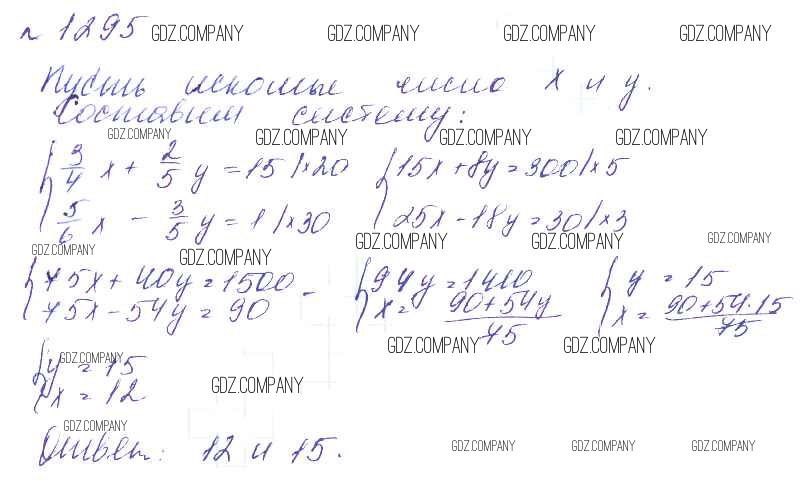 № 1295 GDZ.COMPANY GDZ.COMPANY GDZ.COMPANY GDZ.COMPANY
Пусть искомые число x и y.
Составим систему:
GDZ.COMPANY GDZ.COMPANY GDZ.COMPANY GDZ.COMPANY
{ 3/4 x + 2/5 y = 15 |×20 { 15x + 8y = 300 |×5
5/6 x - 3/5 y = 1 |×30 25x - 18y = 30 |×3
GDZ.COMPANY GDZ.COMPANY GDZ.COMPANY GDZ.COMPANY GDZ.COMPANY
{ 75x + 40y = 1500 - { 94y = 1410 { y = 15
75x - 54y = 90 x = (90+54y)/75 x = (90+54·15)/75
GDZ.COMPANY GDZ.COMPANY
{ y = 15 GDZ.COMPANY
x = 12 GDZ.COMPANY
GDZ.COMPANY
Ответ: 12 и 15. GDZ.COMPANY GDZ.COMPANY GDZ.COMPANY